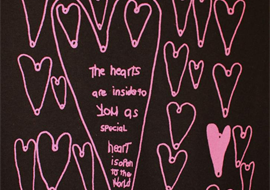 the hearts
are inside to
YOU as
special
heart
is open
to the
World